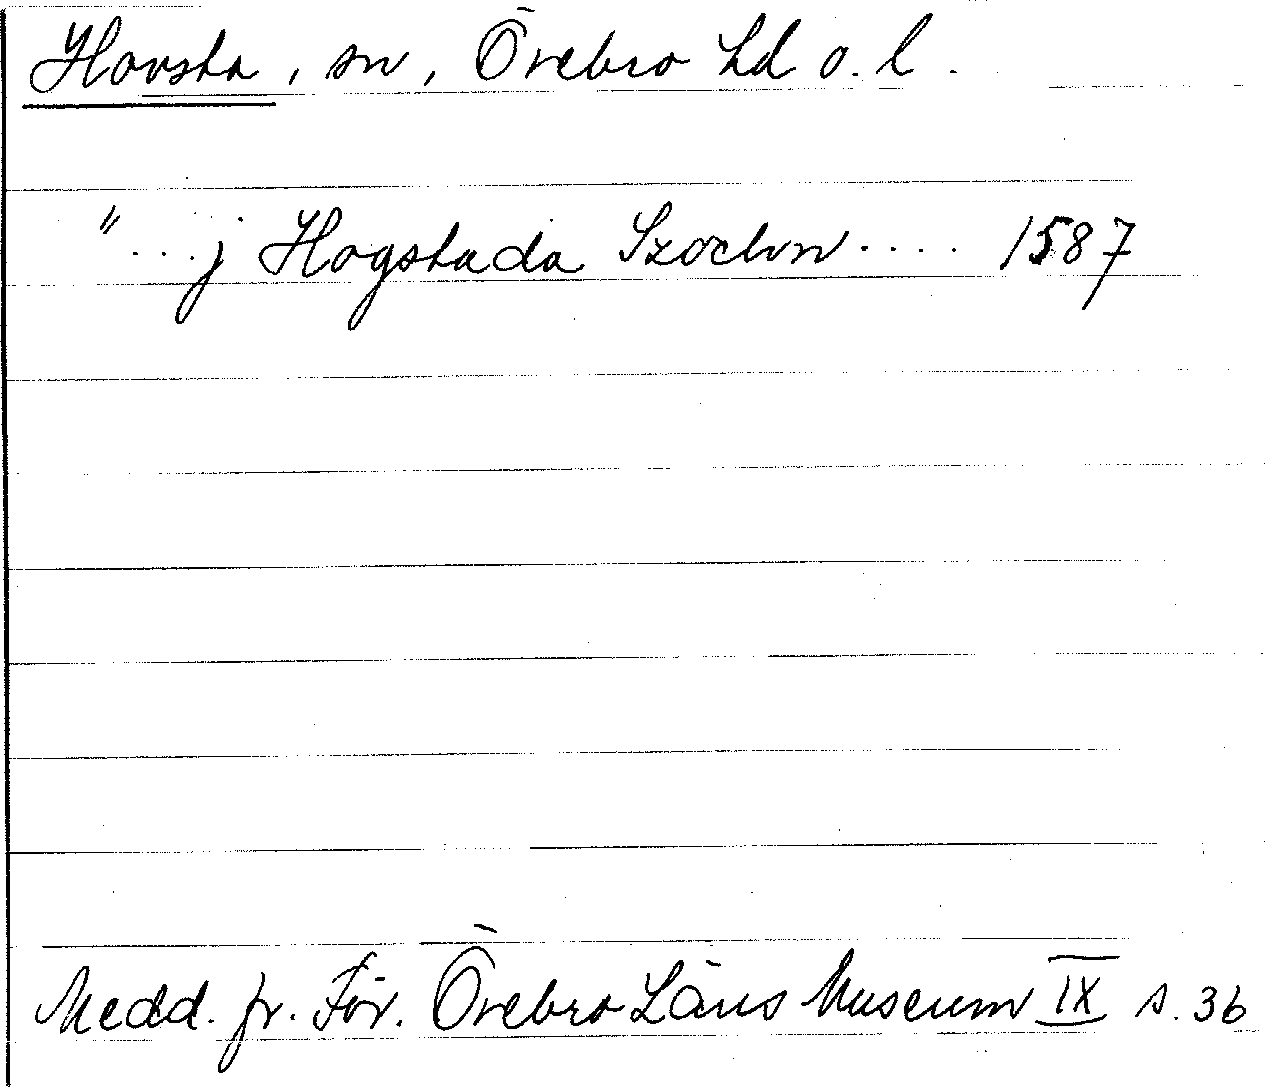 Hovsta, sn, Örebro hd o. l.
"... j Hogstada Szochn .... 1587
Medd. fr. För. Örebro Läns Museum IX s. 36